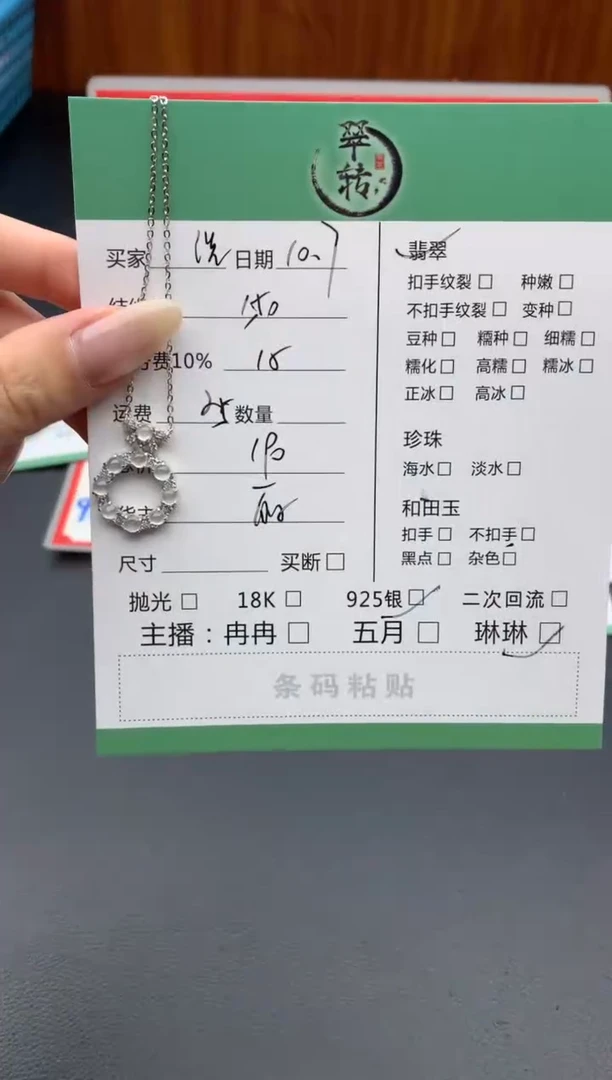 翠转
买家 洗 日期 10.7
150
费10% 15
运费 25 数量
190
尺寸 买断
翡翠
扣手纹裂 种嫩
不扣手纹裂 变种
豆种 糯种 细糯
糯化 高糯 糯冰
正冰 高冰
珍珠
海水 淡水
和田玉
扣手 不扣手
黑点 杂色
抛光 18K 925银 二次回流
主播：冉冉 五月 琳琳
条码粘贴